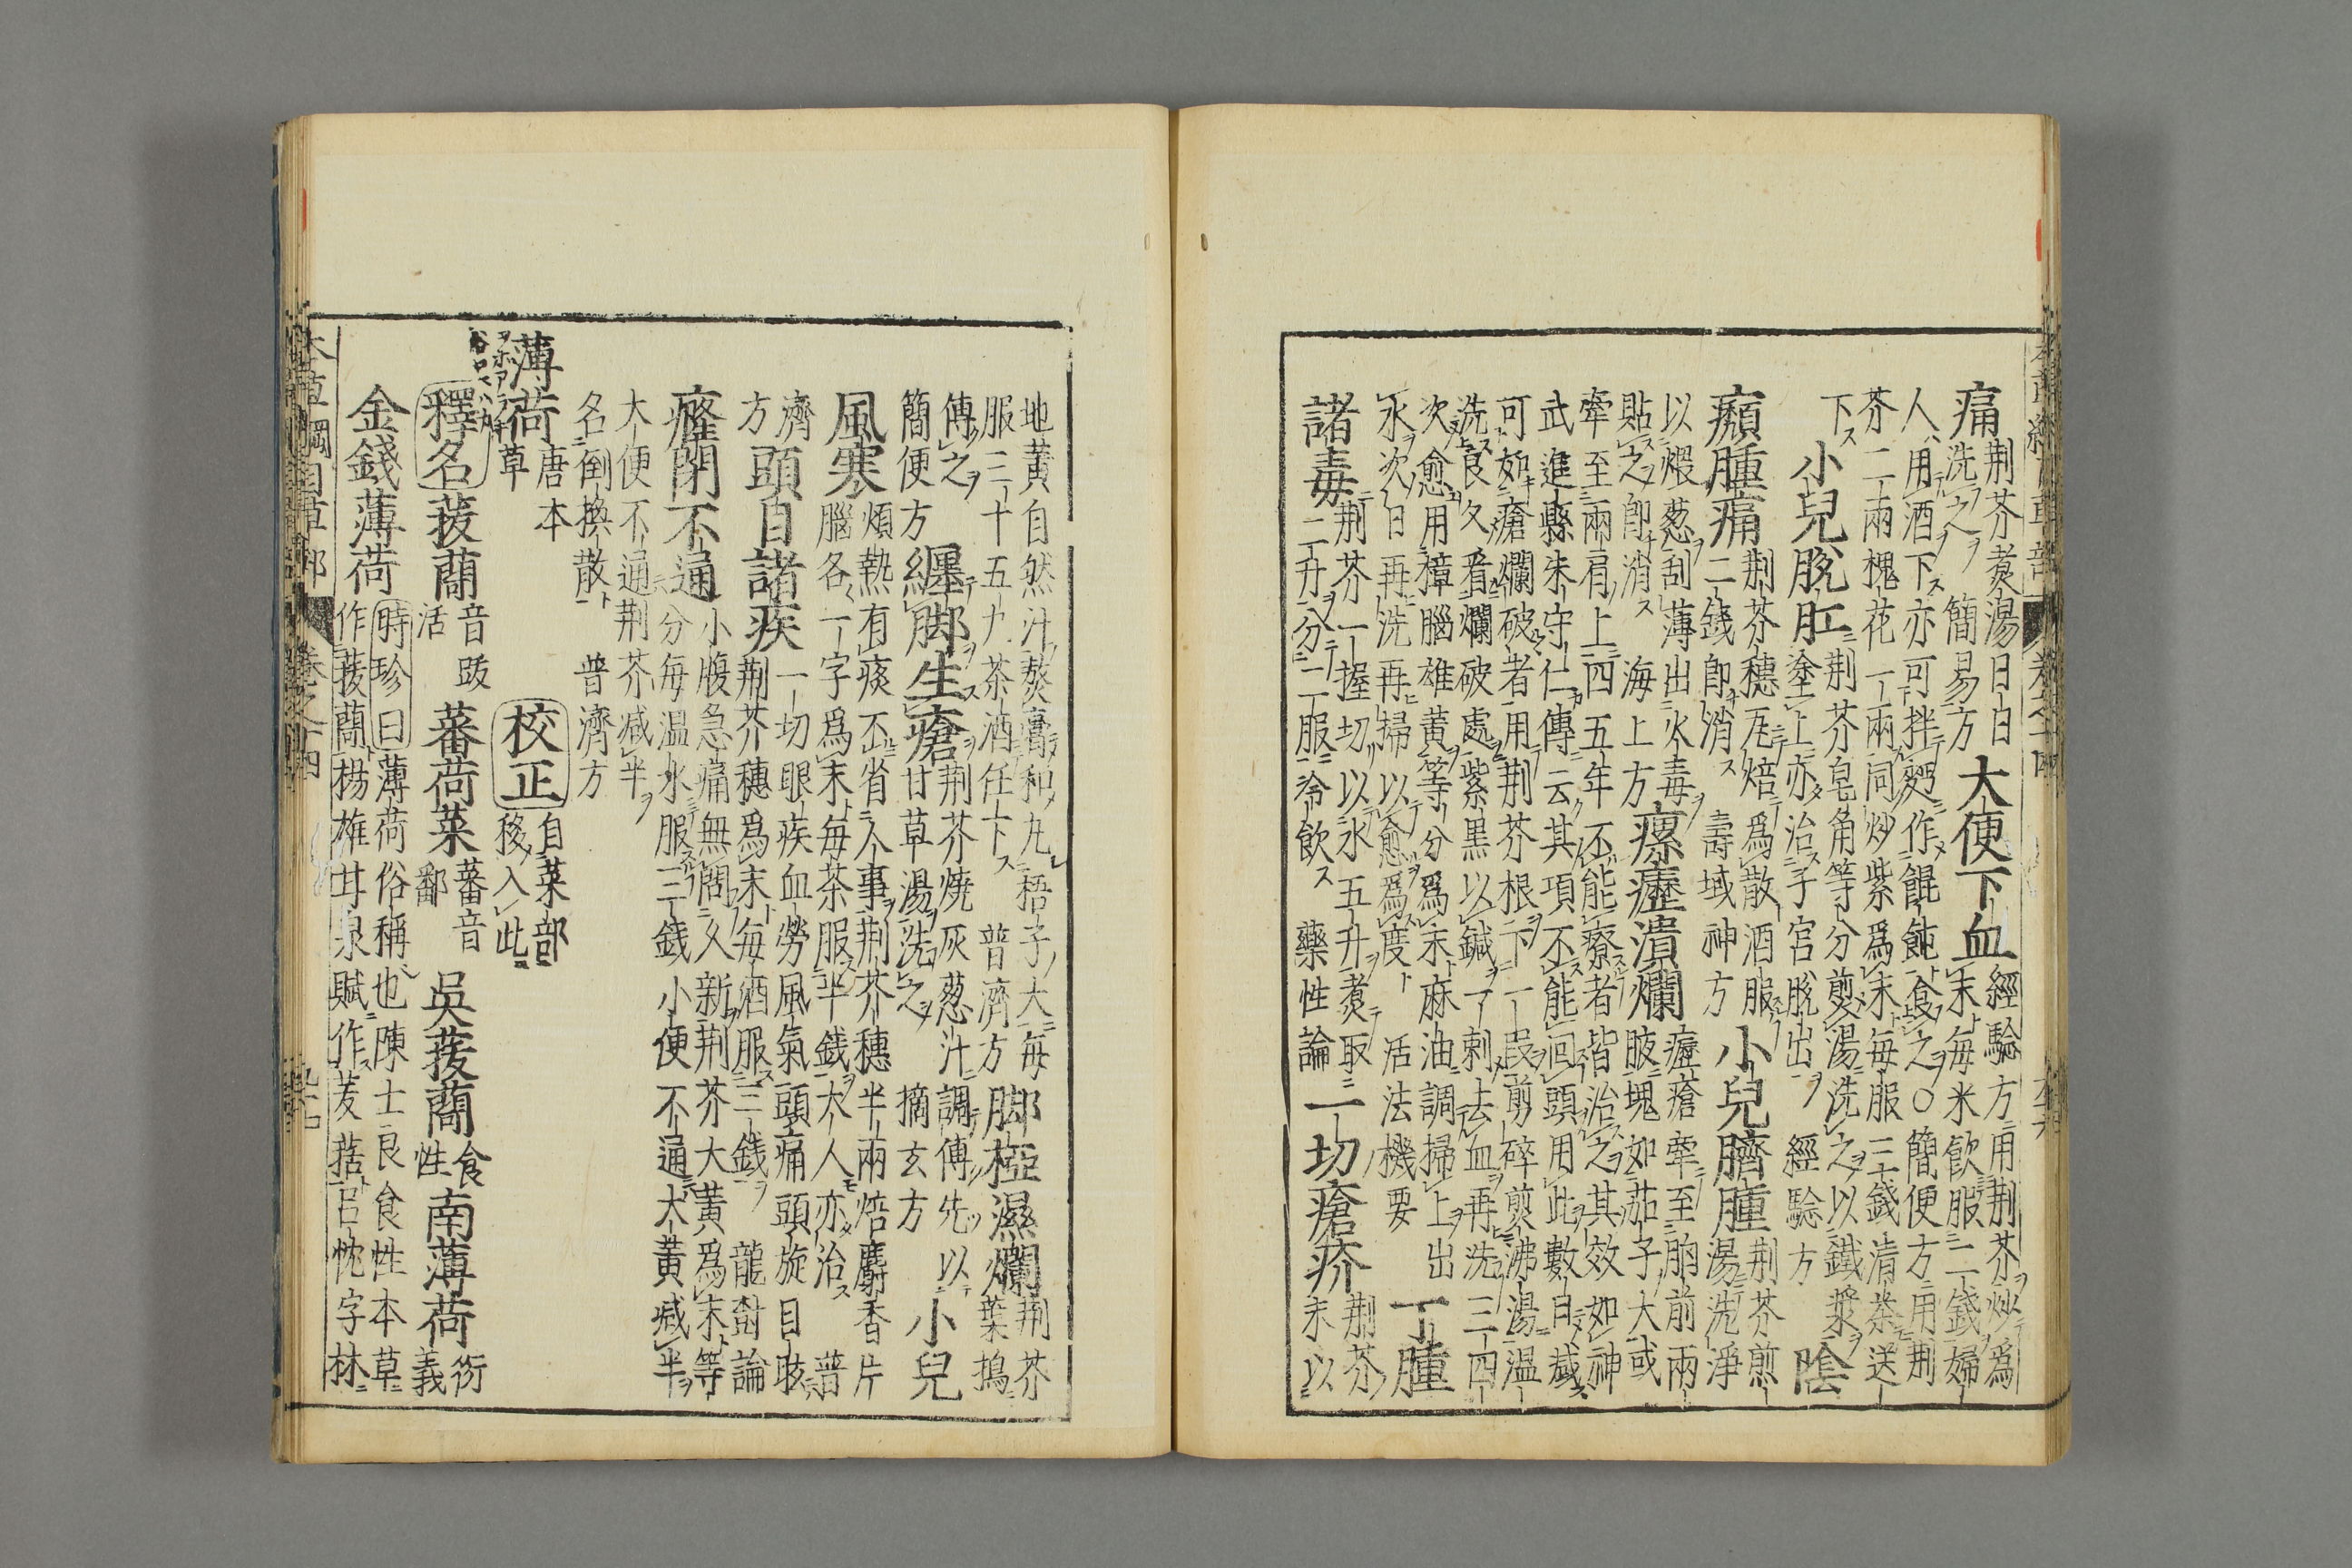 痛
荆芥煑湯日日
洗之 簡易方
大便下血
經驗方用荆芥炒爲
末每米飲服二錢婦
人用酒下亦可拌麪作餛飩食之○簡便方用荆
芥二兩槐花一兩同炒紫爲末每服三錢清茶送
下
小兒脫肛
荆芥皂角等分煎湯洗之以鐵漿
塗上亦治子宮脫出 經驗方
陰
㿗腫痛
荆芥穗瓦焙爲散酒服
二錢卽消 壽域神方
小兒臍腫
荆芥煎
湯洗淨
以煨葱刮薄出火毒
貼之卽消 海上方
瘰癧潰爛
癧瘡牽至胸前兩
腋塊如茄子大或
牽至兩肩上四五年不能療者皆治之其效如神
武進縣朱守仁傳云其項不能回頭用此數日減
可如瘡爛破者用荆芥根下一段剪碎煎沸湯溫
洗良久看爛破處紫黑以鍼一刺去血再洗三四
次愈用樟腦雄黃等分爲末麻油調掃上出
水次日再洗再掃以愈爲度 活法機要
丁腫
諸毒
荆芥一握切以水五升煑取
二升分二服冷飲 藥性論
一切瘡疥
荆芥
末以
地黃自然汁熬膏和丸梧子大每
服三十五丸茶酒任下 普濟方
脚椏濕爛
荆芥
葉搗
傅之
簡便方
纏脚生瘡
荆芥燒灰葱汁調傅先以
甘草湯洗之 摘玄方
小兒
風寒
煩熱有痰不省人事荆芥穗半兩焙麝香片
腦各一字爲末每茶服半錢大人亦治 普
濟
方
頭目諸疾
一切眼疾血勞風氣頭痛頭旋目眩
荆芥穗爲末每酒服三錢 龍樹論
癃閉不通
小腹急痛無問久新荆芥大黃爲末等
分每温水服三錢小便不通大黃減半
大便不通荆芥減半
名倒換散 普濟方
薄荷
唐本
草
校正
自菜部
移入此
釋名
菝蕳
音跋
活
蕃荷菜
蕃音
鄱
吳菝蕳
食
性
南薄荷
衍
義
金錢薄荷
時珍曰薄荷俗稱也陳士良食性本草
作菝蕳楊雄甘泉賦作茇葀呂忱字林